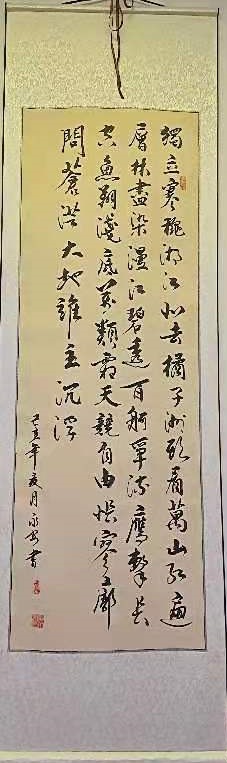 獨立寒秋湘江北去橘子洲頭看萬山紅遍
層林盡染漫江碧透百舸爭流鷹擊長
空魚翔淺底萬類霜天競自由悵寥廓
問蒼茫大地誰主沉浮
己亥年夏月永安書